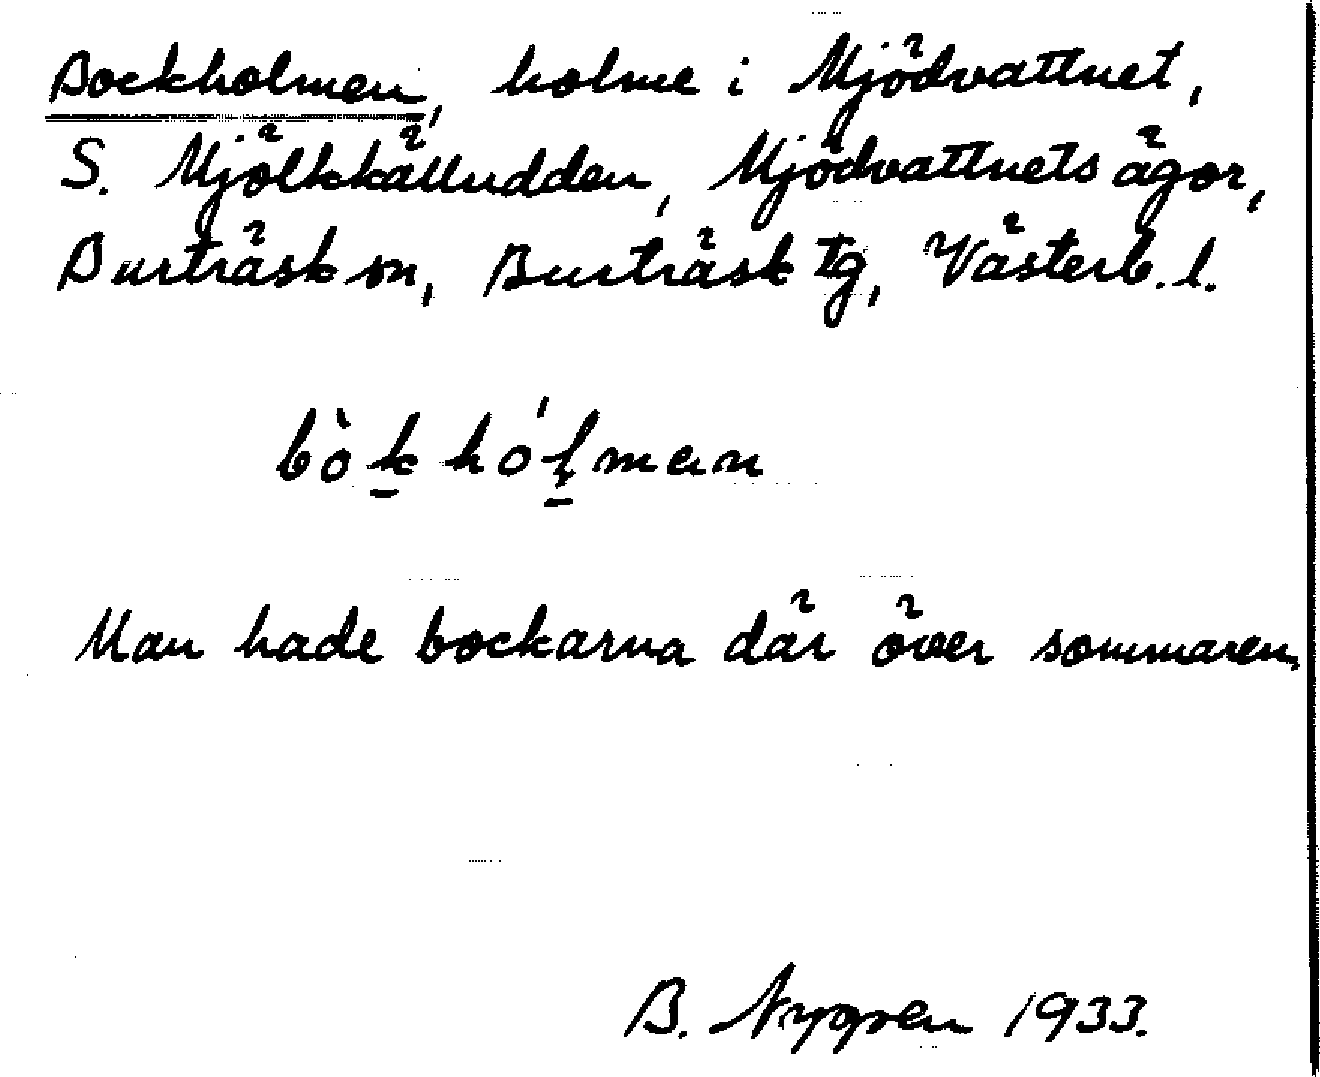 Bockholmen, holme i Mjödvattnet,
S. Mjölkkälludden, Mjödvattnets ägor,
Burträsk sn, Burträsk tg, Västerb. l.
bòk̠ hó̍ḷman
Man hade bockarna där över sommaren.
B. Nygren 1933.